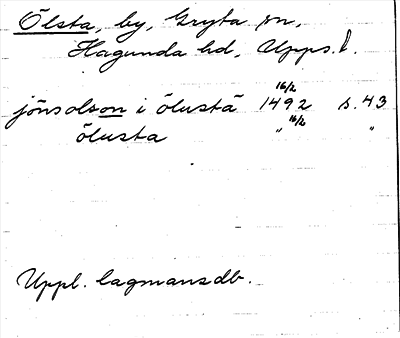 Ölsta, by, Gryta sn,
Hagunda hd, Upps. l.
jönsolson i ölustä 16/2 1492 s. 43
ölusta " 16/2 "
Uppl. lagmansdb.